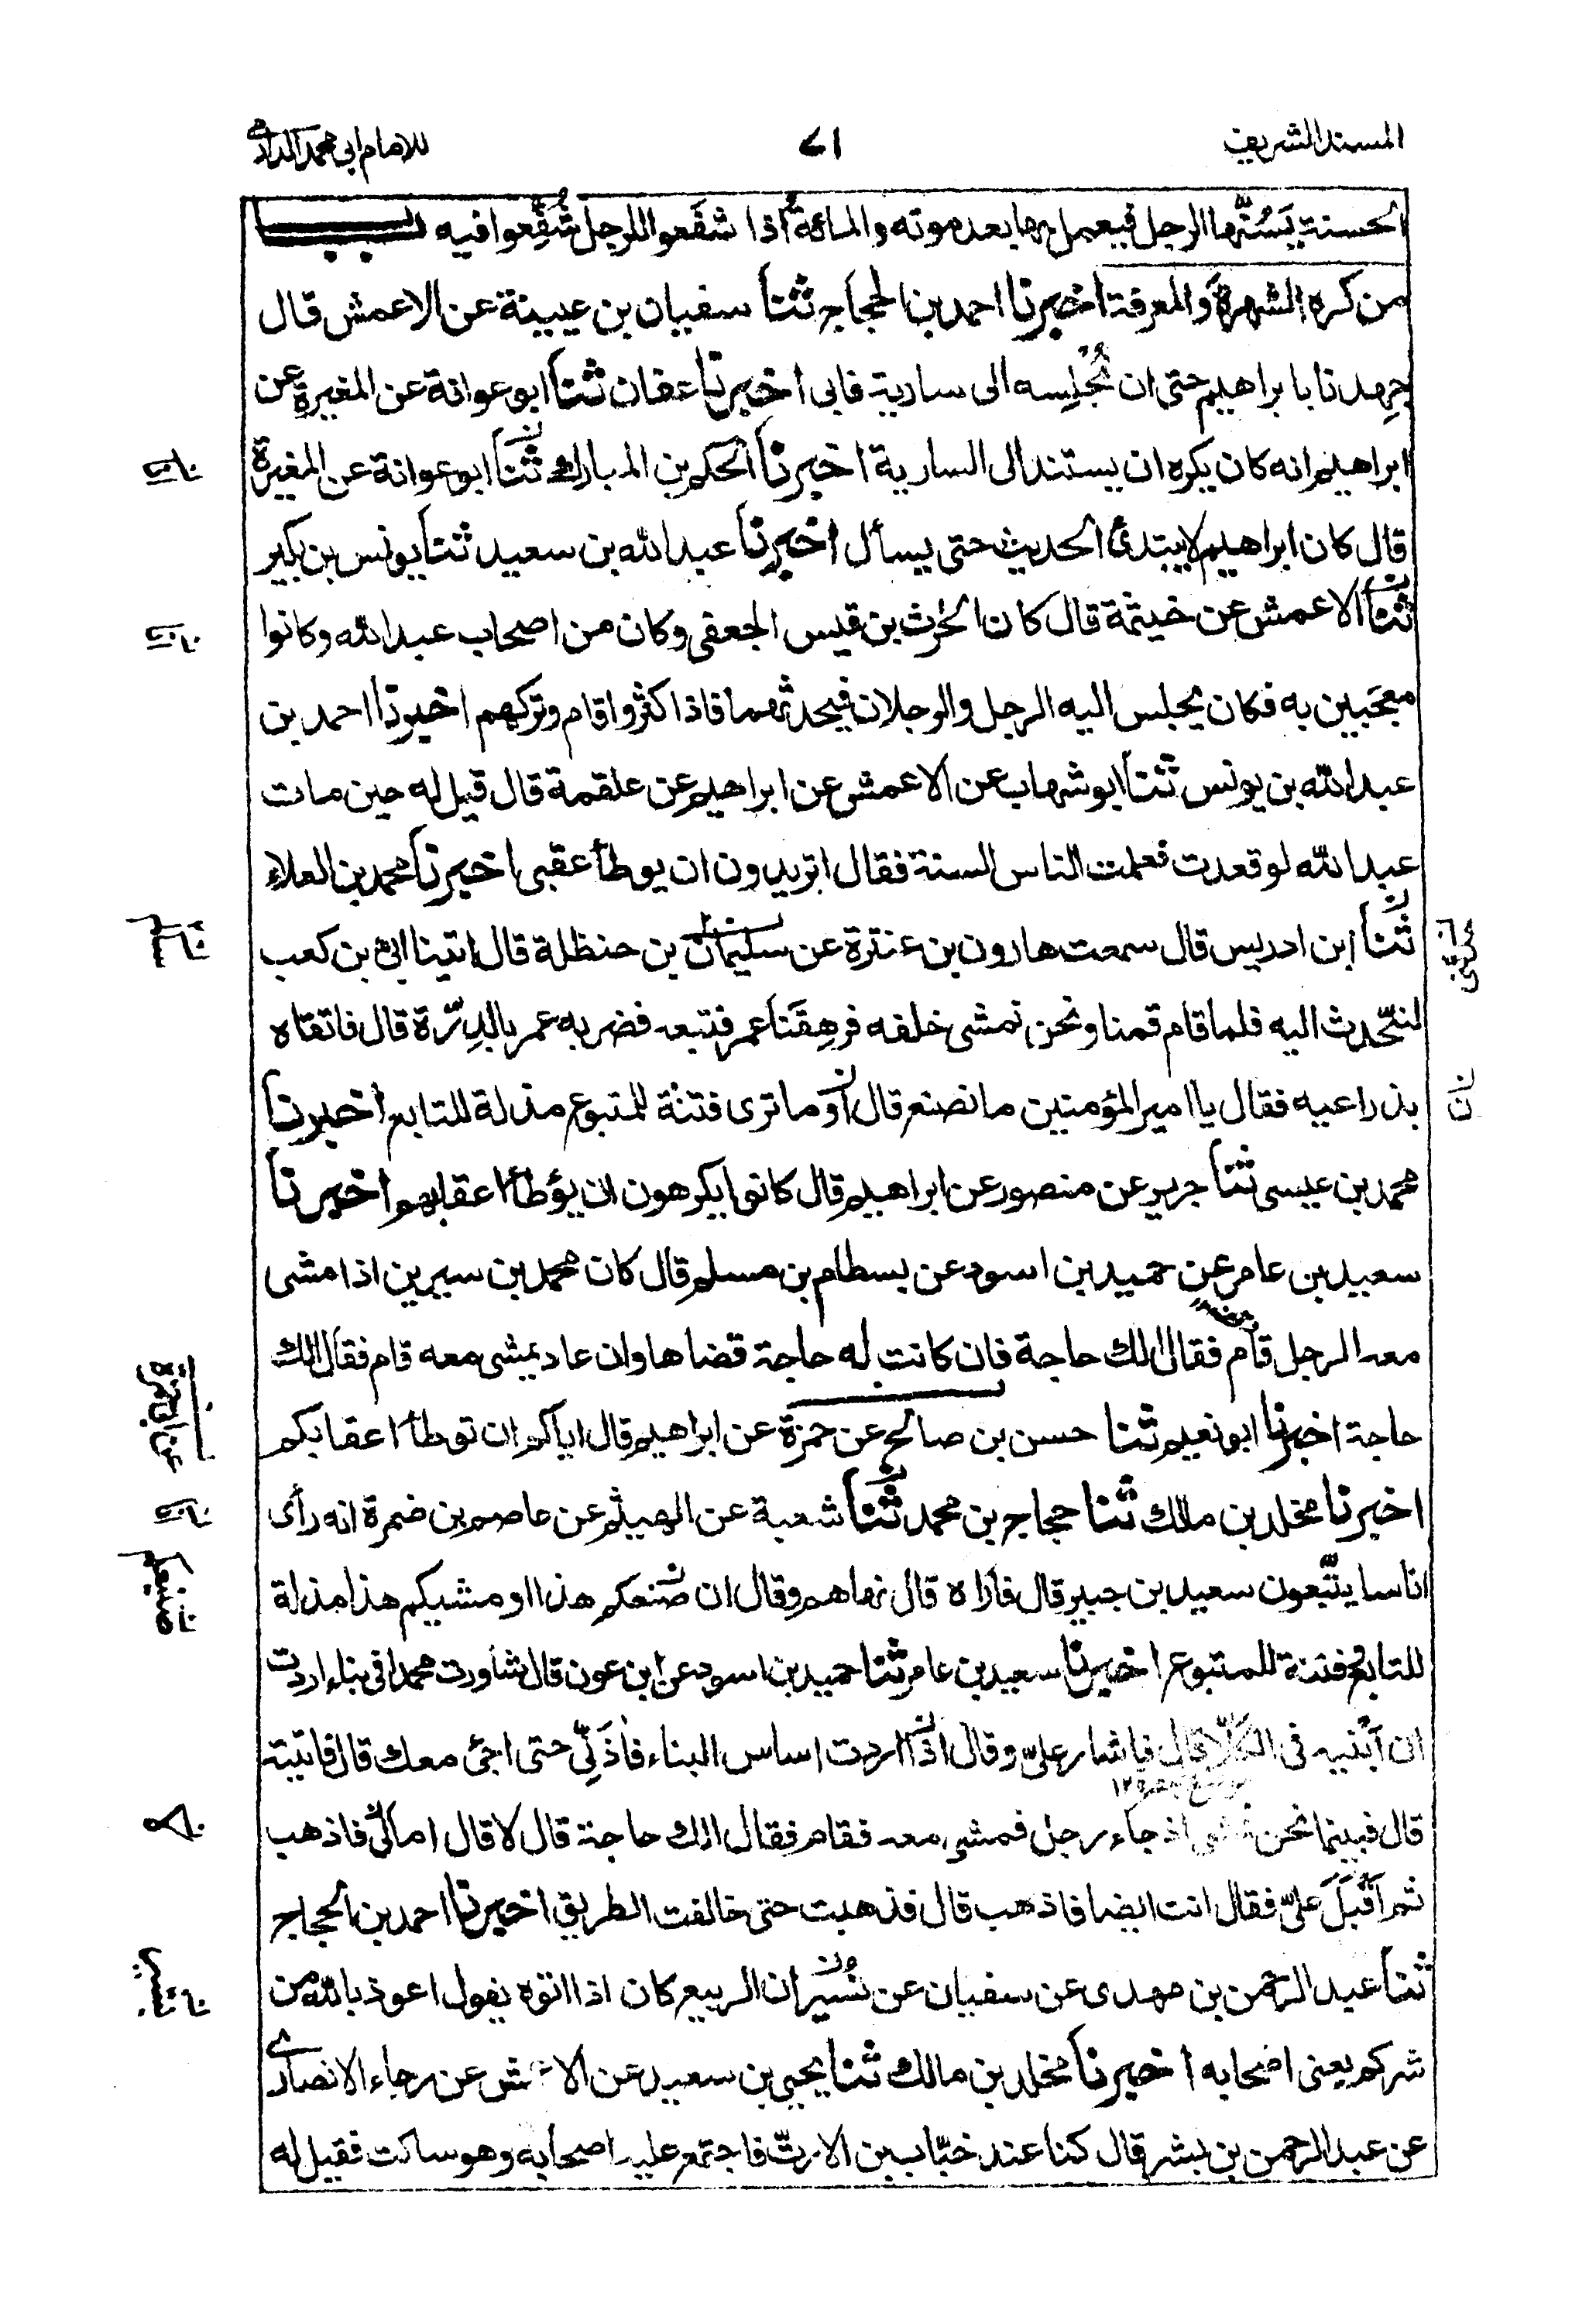 المسند الشريف ٧١ للامام ابي محمد الدارمي
الحسنة يَسُنُّها الرجل فيعمل بها بعد موته والمائة اذا شفَعوا للرجل شُفِّعوا فيه بـــاب
من كره الشهرة والمعرفة اخبرنا احمد بن الحجاج ثنا سفيان بن عيينة عن الاعمش قال
جِهدنا بابراهيم حتى ان نُجلِسه الى سارية فابى اخبرنا عفان ثنا ابو عوانة عن المغيرة عن
ابراهيم انه كان يكره ان يستند الى السارية اخبرنا الحكم بن المبارك ثنا ابو عوانة عن المغيرة
قال كان ابراهيم لا يبتدئ الحديث حتى يسأل اخبرنا عبد الله بن سعيد ثنا يونس بن بكير
ثنا الاعمش عن خيثمة قال كان الحرث بن قيس الجعفى وكان من اصحاب عبد الله وكانوا
معجَبين به فكان يجلس اليه الرجل والرجلان فيحدثهما فاذا كثروا قام وتركهم اخبرنا احمد بن
عبد الله بن يونس ثنا ابو شهاب عن الاعمش عن ابراهيم عن علقمة قال قيل له حين مات
عبد الله لو قعدت فعلمت الناس السنة فقال اتريدون ان يوطأ عقبى اخبرنا محمد بن العلاء
ثنا ابن ادريس قال سمعت هارون بن عنترة عن سليمان بن حنظلة قال اتينا ابىّ بن كعب
لنتحدث اليه فلما قام قمنا ونحن نمشى خلفه فرهِقَنا عمر فتبعه فضربه عمر بالدِرّة قال فاتقاه
بذراعيه فقال يا امير المؤمنين ما نصنع قال أوَ ما ترى فتنة للمتبوع مذلة للتابع اخبرنا
محمد بن عيسى ثنا جرير عن منصور عن ابراهيم قال كانوا يكرهون ان يؤطأ اعقابهم اخبرنا
سعيد بن عامر عن حميد بن اسود عن بسطام بن مسلم قال كان محمد بن سيرين اذا مشى
معه الرجل قام فقال الك حاجة فان كانت له حاجة قضاها وان عاد يمشى معه قام فقال الك
حاجة اخبرنا ابو نعيم ثنا حسن بن صالح عن حمزة عن ابراهيم قال اياكم ان توطأ اعقابكم
اخبرنا مخلد بن مالك ثنا حجاج بن محمد ثنا شعبة عن الهيثم عن عاصم بن ضمرة انه رأى
اناسا يتّبعون سعيد بن جبير قال فأراه قال نهاهم وقال ان صنعكم هذا او مشيكم هذا مذلة
للتابع فتنة للمتبوع اخبرنا سعيد بن عامر ثنا حميد بن اسود عن ابن عون قال شاورت محمدا فى بناء اردت
ان أبنيه فى الكلّا قال فاشار علىّ وقال اذا اردت اساس البناء فأذَنِّى حتى اجئ معك قال فاتيته
قال فبينما نحن نمشى اذ جاء رجل فمشى معه فقام فقال الك حاجة قال لا قال امالى فاذهب
ثم أقبَلَ علىّ فقال انت ايضا فاذهب قال فذهبت حتى خالفت الطريق اخبرنا احمد بن الحجاج
ثنا عبد الرحمن بن مهدى عن سفيان عن نُسَير ان الربيع كان اذا اتوه يقول اعوذ بالله من
شركم يعنى اصحابه اخبرنا مخلد بن مالك ثنا يحيى بن سعيد عن الاعمش عن رجاء الانصارى
عن عبد الرحمن بن بشر قال كنا عند خبّاب بن الارتّ فاجتمع عليه اصحابه وهو ساكت فقيل له